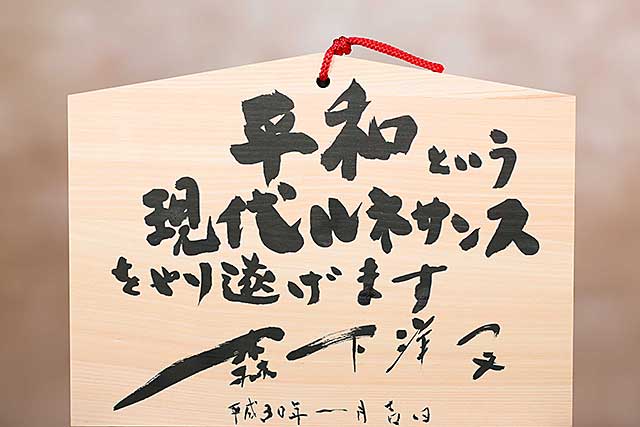 平和という
現代ルネサンス
をやり遂げます
森下洋文
平成30年一月吉日